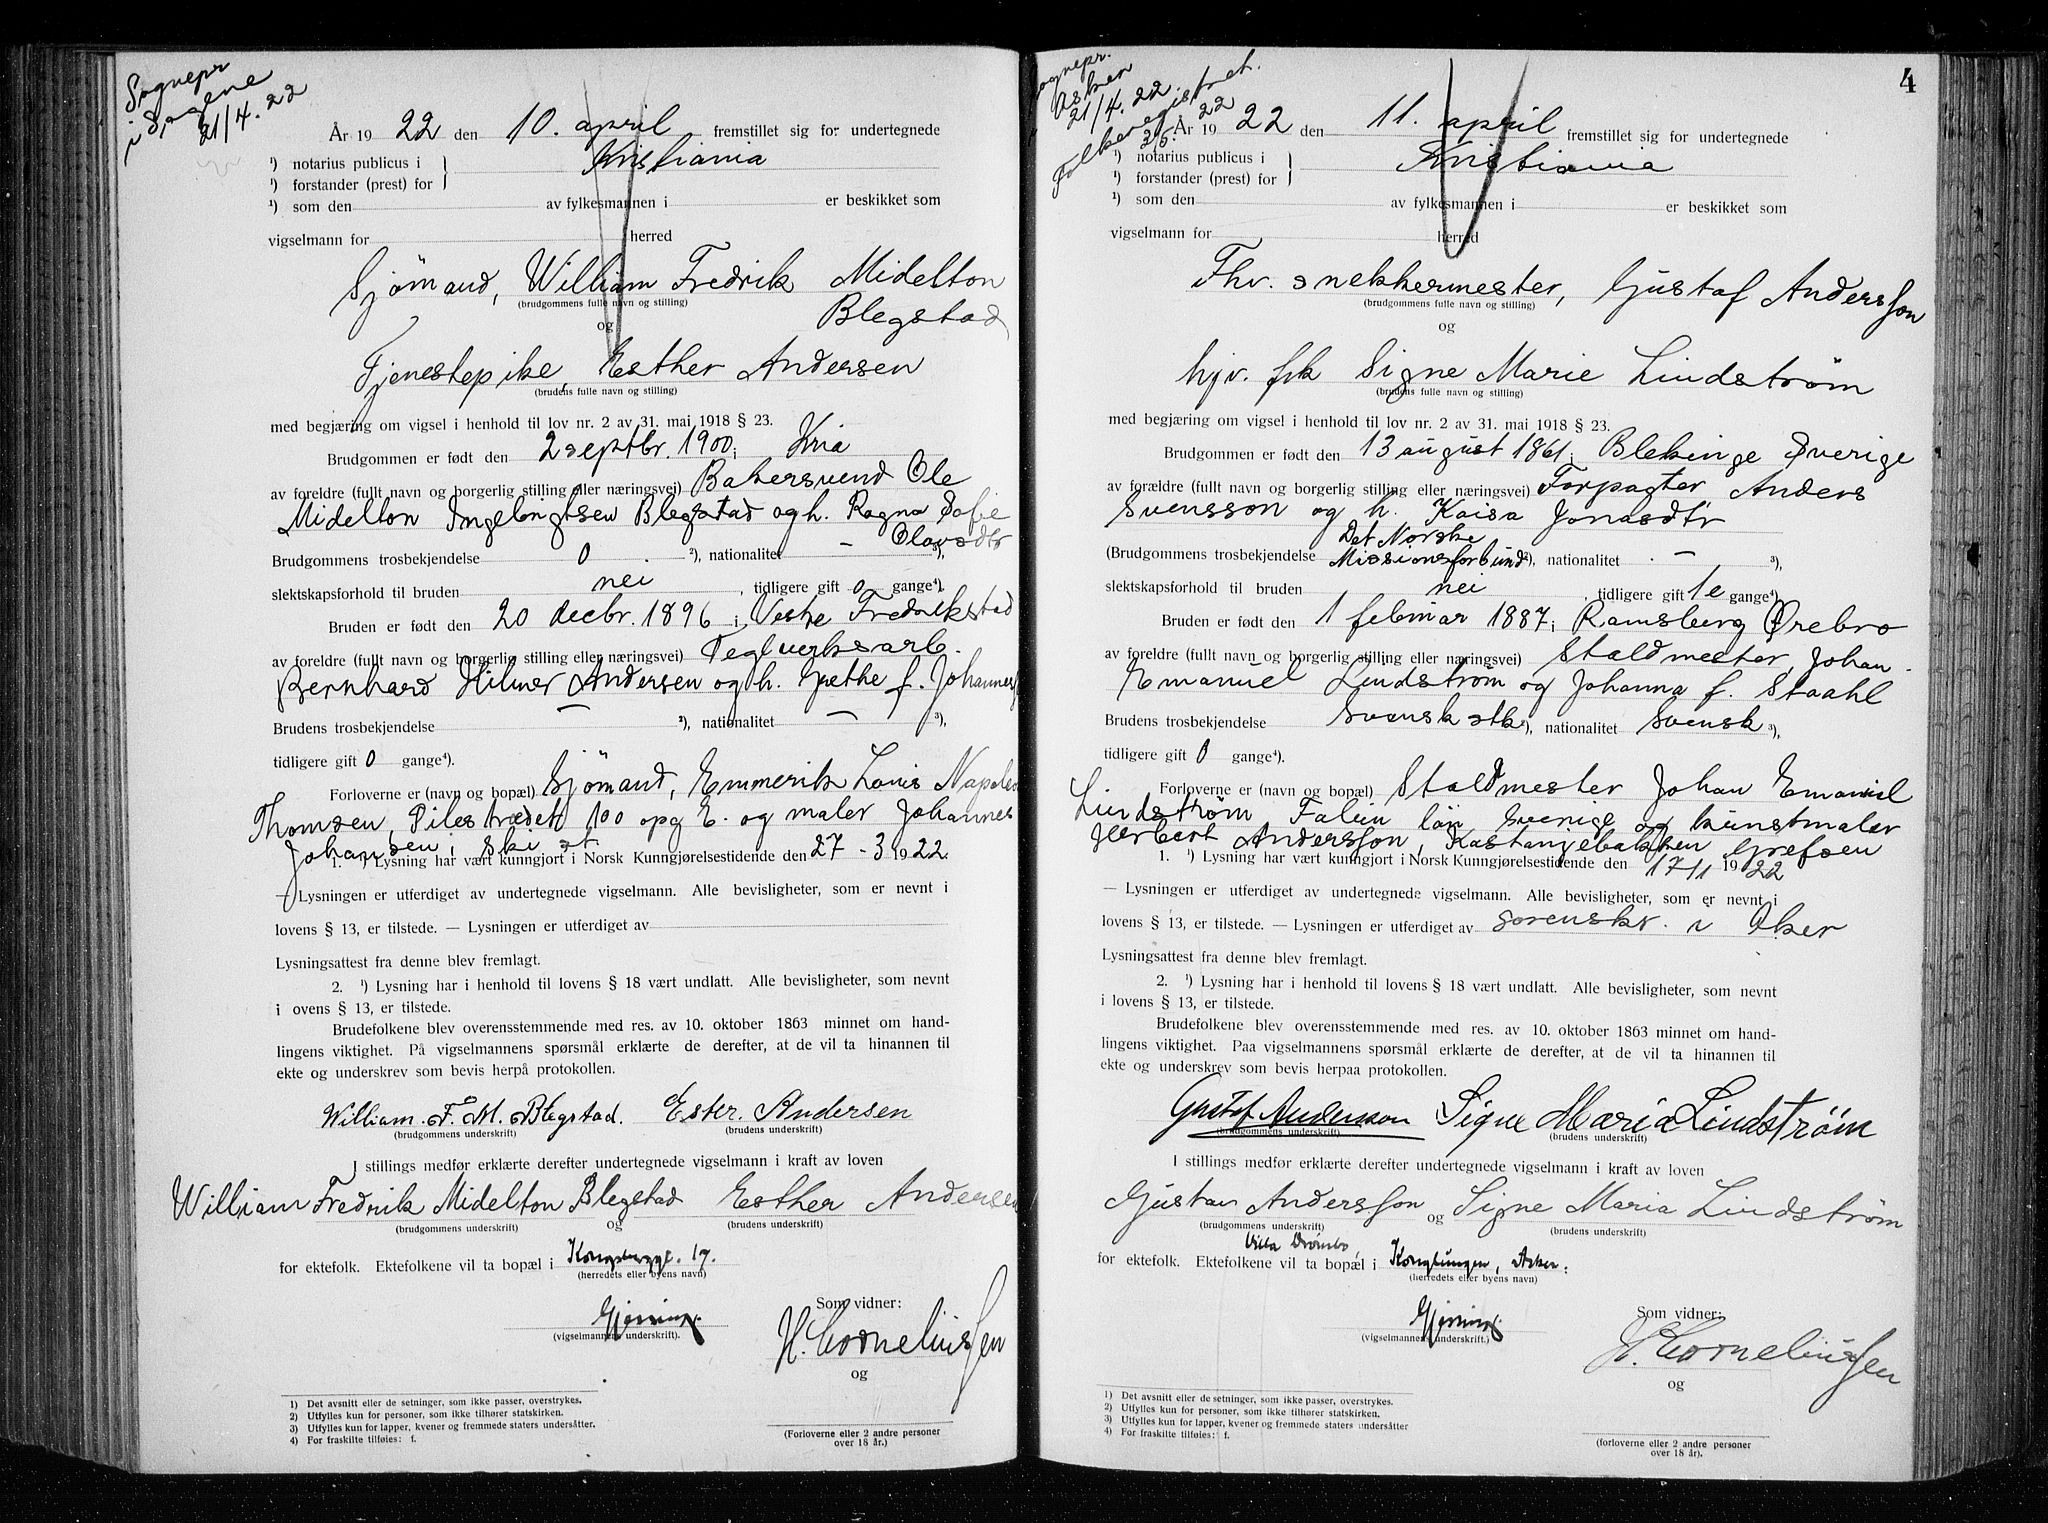 Sognepr
i Sagene
21/4. 22
År 1922 den 10. april fremstillet sig for undertegnede
¹) notarius publicus i Kristiania
¹) forstander (prest) for
¹) som den av fylkesmannen i er beskikket som
vigselmann for herred
Sjömand, William Fredrik Midelton
(brudgommens fulle navn og stilling)
Blegstad
og
Tjenestepike, Esther Andersen
(brudens fulle navn og stilling)
med begjæring om vigsel i henhold til lov nr. 2 av 31. mai 1918 § 23.
Brudgommen er født den 2 septbr. 1900 i Kria
av foreldre (fullt navn og borgerlig stilling eller næringsvei) Bakersvend Ole
Midelton Engelbrigtsen Blegstad og h. Ragna Sofie
Olavsdtr
Brudgommens trosbekjendelse 0 ²), nationalitet - ³),
slektskapsforhold til bruden nei, tidligere gift 0 gange⁴).
Bruden er født den 20 decbr. 1896 i Vestre Fredrikstad
av foreldre (fullt navn og borgerlig stilling eller næringsvei) Teglverksarb.
Bernhard Hilmer Andersen og h. Grethe f. Johannes
Brudens trosbekjendelse - ²), nationalitet - ³),
tidligere gift 0 gange⁴).
Forloverne er (navn og bopæl) Sjömand, Emmerik Louis Napoleon
Thomsen, Pilestrædet 100 opg E. og maler Johannes
Johansen, Ski st
1. ¹) Lysning har vært kunngjort i Norsk Kunngjørelsestidende den 27 - 3 1922.
— Lysningen er utferdiget av undertegnede vigselmann. Alle bevisligheter, som er nevnt i
lovens § 13, er tilstede. — Lysningen er utferdiget av
Lysningsattest fra denne blev fremlagt.
2. ¹) Lysning har i henhold til lovens § 18 vært undlatt. Alle bevisligheter, som nevnt
i ovens § 13, er tilstede.
Brudefolkene blev overensstemmende med res. av 10. oktober 1863 minnet om hand-
lingens viktighet. På vigselmannens spørsmål erklærte de derefter, at de vil ta hinannen til
ekte og underskrev som bevis herpå protokollen.
William. F. M. Blegstad. Ester. Andersen
(brudgommens underskrift) (brudens underskrift)
I stillings medfør erklærte derefter undertegnede vigselmann i kraft av loven
William Fredrik Midelton Blegstad og Esther Andersen
(brudgommens underskrift) (brudens underskrift)
for ektefolk. Ektefolkene vil ta bopæl i Kongsbergg. 17.
(herredets eller byens navn)
Som vidner:
Gjerning.
(vigselmannens underskrift).
H. Cornelinssen
og
1) Det avsnitt eller de setninger, som ikke passer, overstrykes.
2) Utfylles kun for personer, som ikke tilhører statskirken.
3) Utfylles kun for lapper, kvener og fremmede staters undersåtter.
4) For fraskilte tilføies: f.
(Forloverne eller 2 andre personer
over 18 år.)
4
Sognepr.
Asker
21/4. 22
Folkeregistret.
26. 22
År 1922 den 11. april fremstillet sig for undertegnede
¹) notarius publicus i Kristiania
¹) forstander (prest) for
¹) som den av fylkesmannen i er beskikket som
vigselmann for herred
Fhv. snekkermester, Gustaf Andersson
(brudgommens fulle navn og stilling)
og
hjv. frk Signe Marie Lindstrøm
(brudens fulle navn og stilling)
med begjæring om vigsel i henhold til lov nr. 2 av 31 mai 1918 § 23.
Brudgommen er født den 13 august 1861 i Blekinge Sverige
av forældre (fullt navn og borgerlig stilling eller næringsvei) Forpagter Anders
Svensson og h. Kaisa Jonasdtr
Det Norske
(Brudgommens trosbekjendelse Missionsforbund ²), nationalitet - ³),
slektskapsforhold til bruden nei, tidligere gift 1e gange⁴)
Bruden er født den 1 februar 1887 i Ramsberg Ørebro
av foreldre (fullt navn og borgerlig stilling eller næringsvei) Staldmester Johan
Emanuel Lindstrøm og Johanna f. Staahl
Brudens trosbekjendelse Svensk stk ²), nationalitet Svensk ³),
tidligere gift 0 gange⁴).
Forloverne er (navn og bopæl) Staldmester Johan Emanuel
Lindstrøm Falun län Sverige og kunstmaler
Herbert Andersson, Kastanjebakken Grefsen
1. ¹) Lysning har vært kunngjort i Norsk Kunngjørelsestidende den 17 1 1922
— Lysningen er utferdiget av undertegnede vigselmann. Alle bevisligheter, som er nevnt i
lovens § 13, er tilstede. — Lysningen er utferdiget av sorenskr. i Aker
Lysningsattest fra denne blev fremlagt.
2. ¹) Lysning har i henhold til lovens § 18 vært undlatt. Alle bevisligheter, som nevnt
i lovens § 13, er tilstede.
Brudefolkene blev overensstemmende med res. av 10. oktober 1863 minnet om hand-
lingens viktighet. Paa vigselmannens spørsmål erklærte de derefter, at de vil ta hinannen til
ekte og underskrev som bevis herpaa protokollen.
Gustaf Andersson Signe Maria Lindstrøm
(brudgommens underskrift) (brudens underskrift)
I stillings medfør erklærte derefter undertegnede vigselmann i kraft av loven
Gustav Andersson og Signe Maria Lindstrøm
(brudgommens underskrift) (brudens underskrift)
Villa Drömbo,
for ektefolk. Ektefolkene vil ta bopæl i Konglungen, Asker.
(herredets eller byens navn)
Som vidner:
Gjerning.
(vigselmannens underskrift).
H. Cornelinssen
og
1) Det avsnitt eller de setninger, som ikke passer, overstrykes.
2) Utfylles kun for personer, som ikke tilhører statskirken.
3) Utfylles kun for lapper, kvener og fremmede staters undersåtter
4) For fraskilte tilføies: f.
(forloverne eller 2 andre personer
over 18 år).